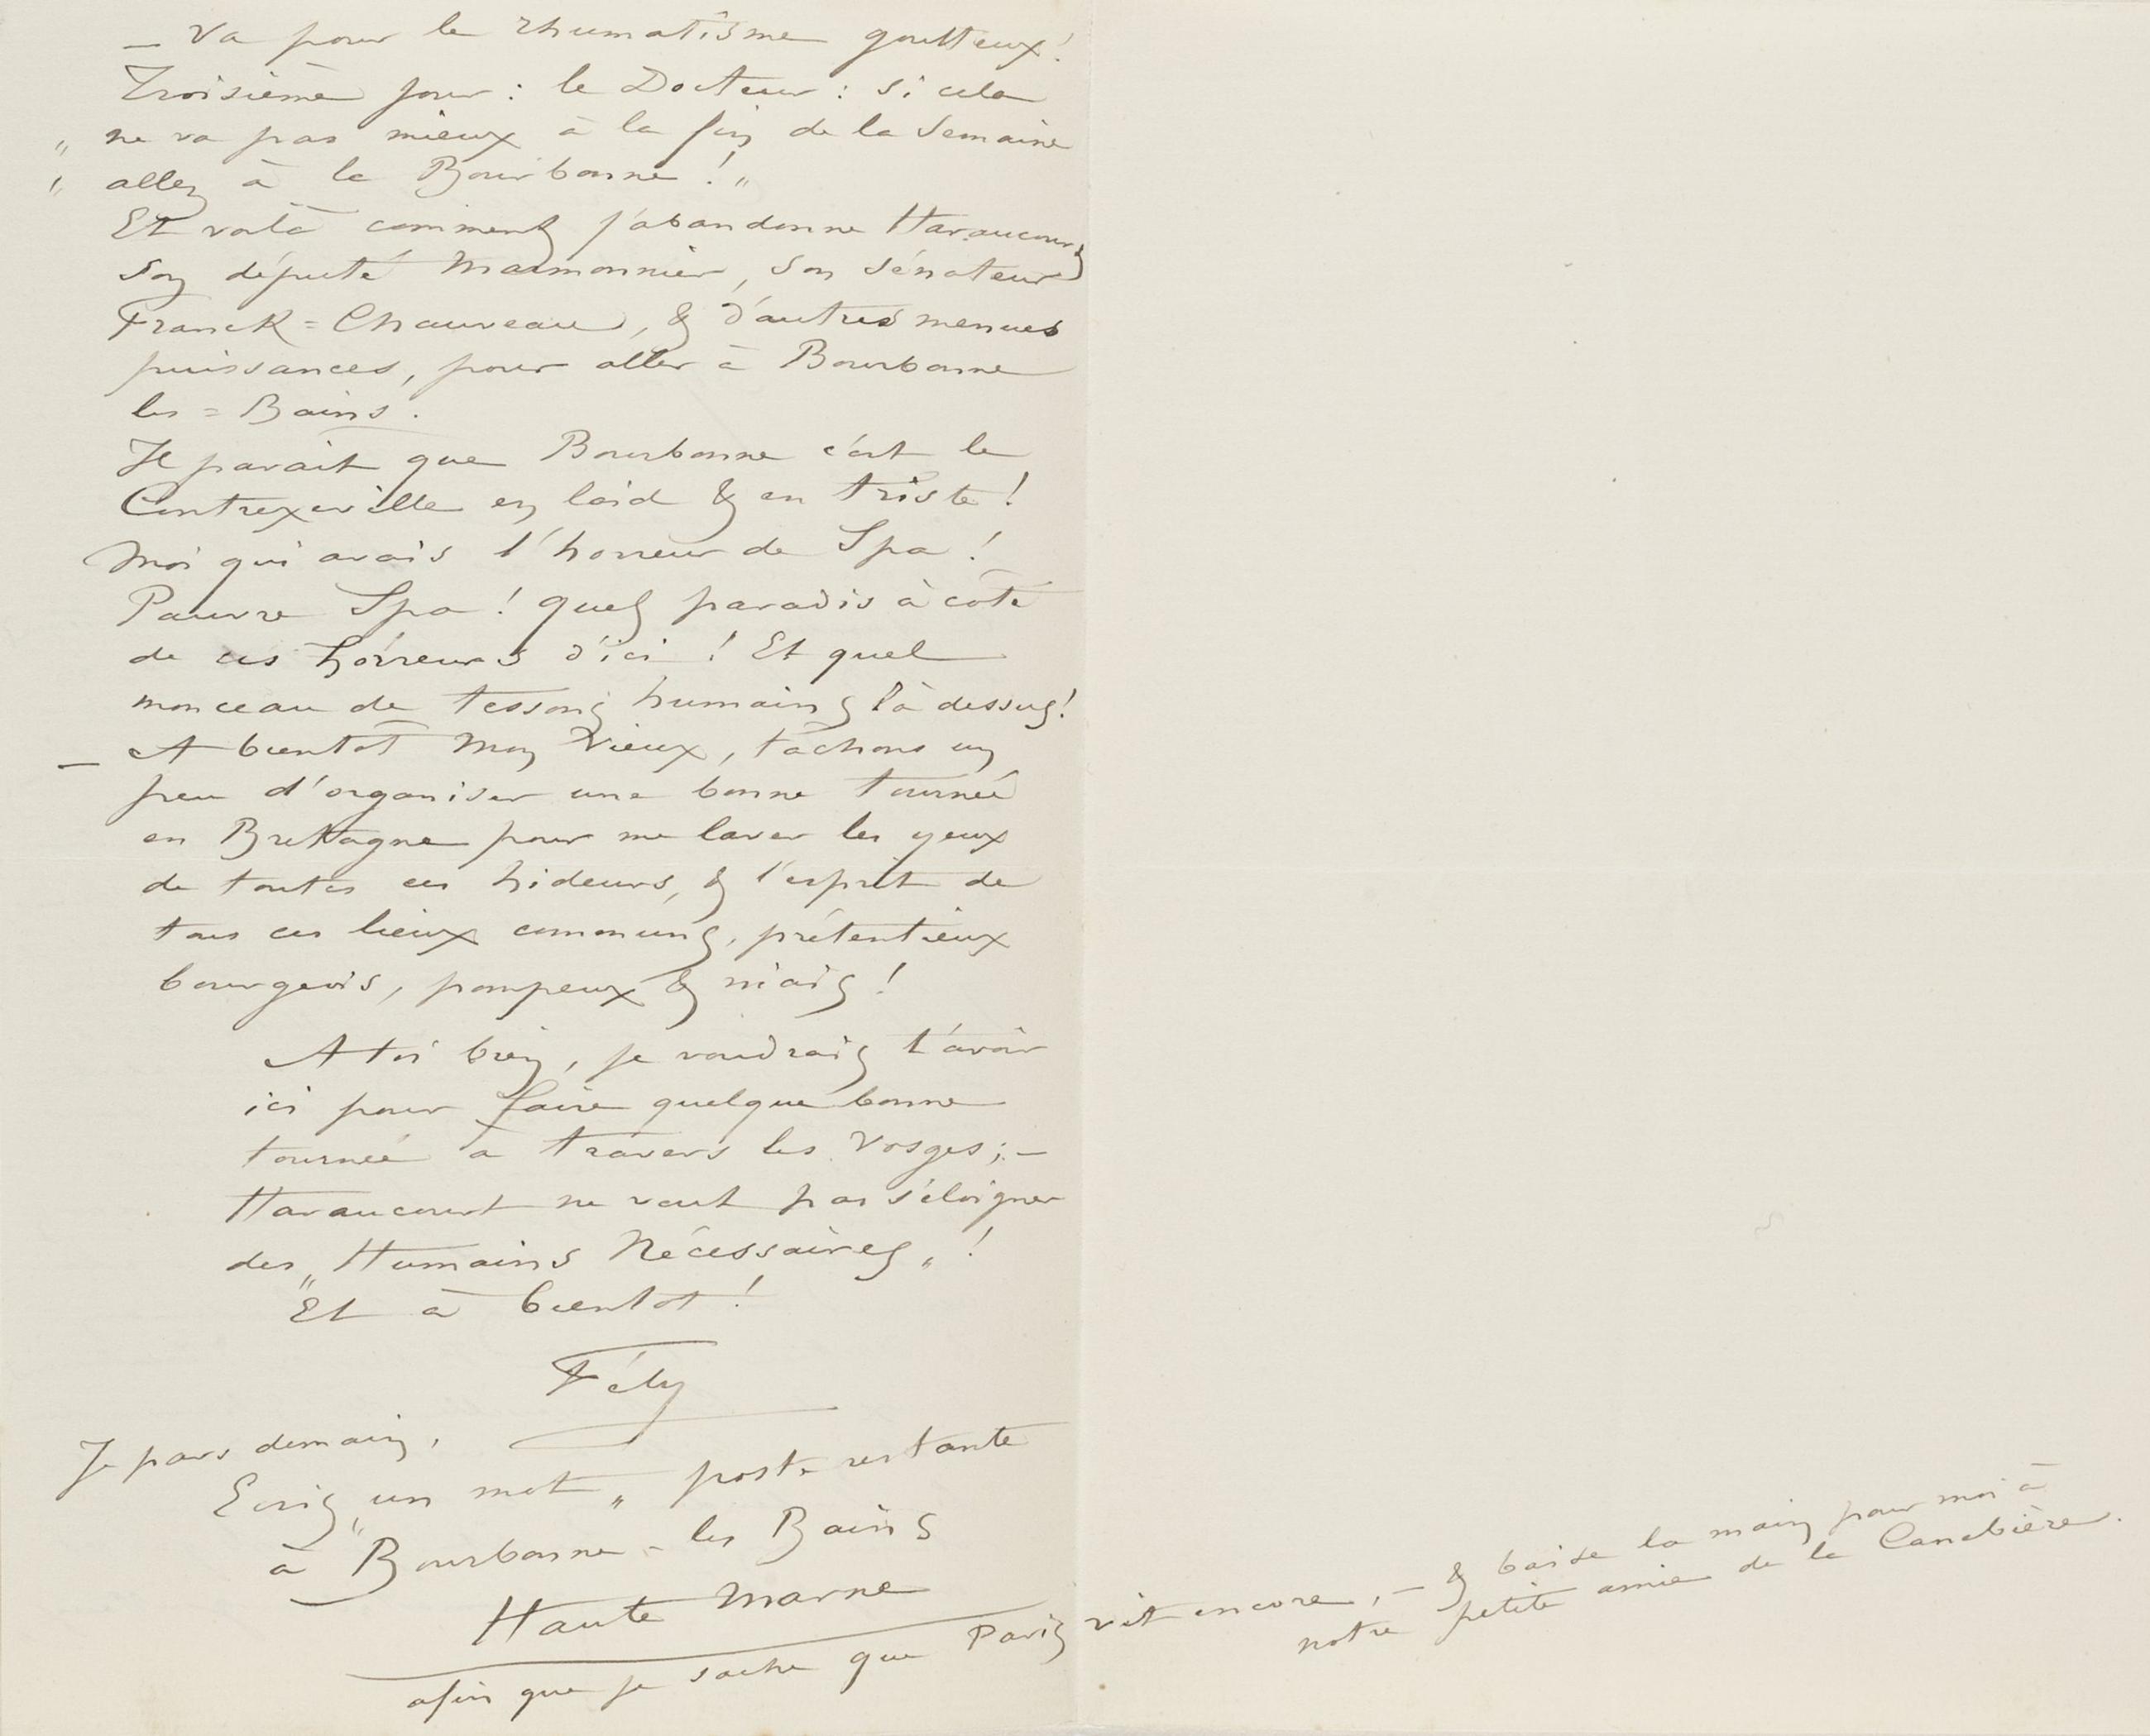 — Va pour le rhumatisme goutteux!
Troisième jour : le Docteur : si cela
„ ne va pas mieux à la fin de la Semaine
„ allez à la Bourbonne ! „
Et voilà comment j'abandonne Haraucourt
son député Marmonnier, son Sénateur
Franck = Chauveau, & d'autres menues
puissances, pour aller à Bourbonne
les = Bains.
Il parait que Bourbonne c'est le
Contrexeville en laid & en triste !
Moi qui avais l'horreur de Spa !
Pauvre Spa ! quel paradis à côté
de ces horreurs d'ici ! Et quel
monceau de tessons humains là dessus!
— A bientôt mon Vieux, tâchons un
peu d'organiser une bonne tournée
en Brettagne pour me laver les yeux
de toutes ces hideurs, & l'esprit de
tous ces lieux communs, prétentieux
bourgeois, pompeux & niais !
A toi bien, je voudrais t'avoir
ici pour faire quelque bonne
tournée à travers les Vosges ; —
Haraucourt ne veut pas s'éloigner
des „ Humains Nécessaires „ !
Et à bientot !
Fély
Je pars demain,
Ecris un mot „ poste restante „
à Bourbonne - les Bains
Haute Marne
afin que je sache que Paris vit encore, — & baise la main pour moi à
notre petite amie de la Canebière.